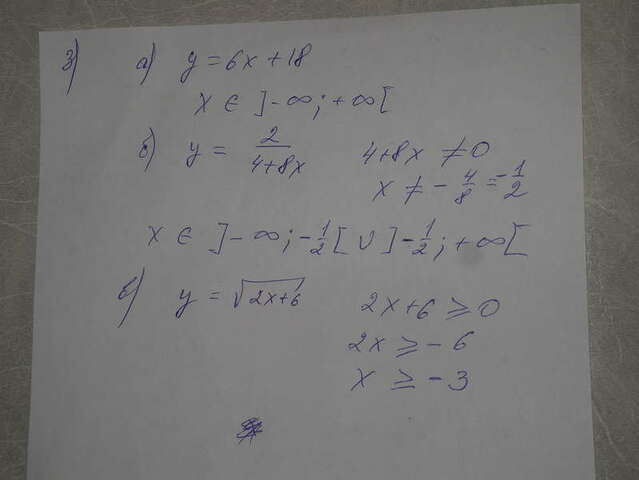 3) а) y = 6x + 18
x ∈ ]-∞; +∞[
б) y = 2/(4+8x) 4+8x ≠ 0
x ≠ - 4/8 = -1/2
x ∈ ]-∞; -1/2[ ∪ ]-1/2; +∞[
в) y = √(2x+6) 2x+6 ≥ 0
2x ≥ -6
x ≥ -3